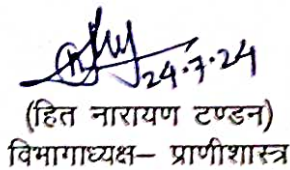 24.7.24
(हित नारायण टण्डन)
विभागाध्यक्ष– प्राणीशास्त्र